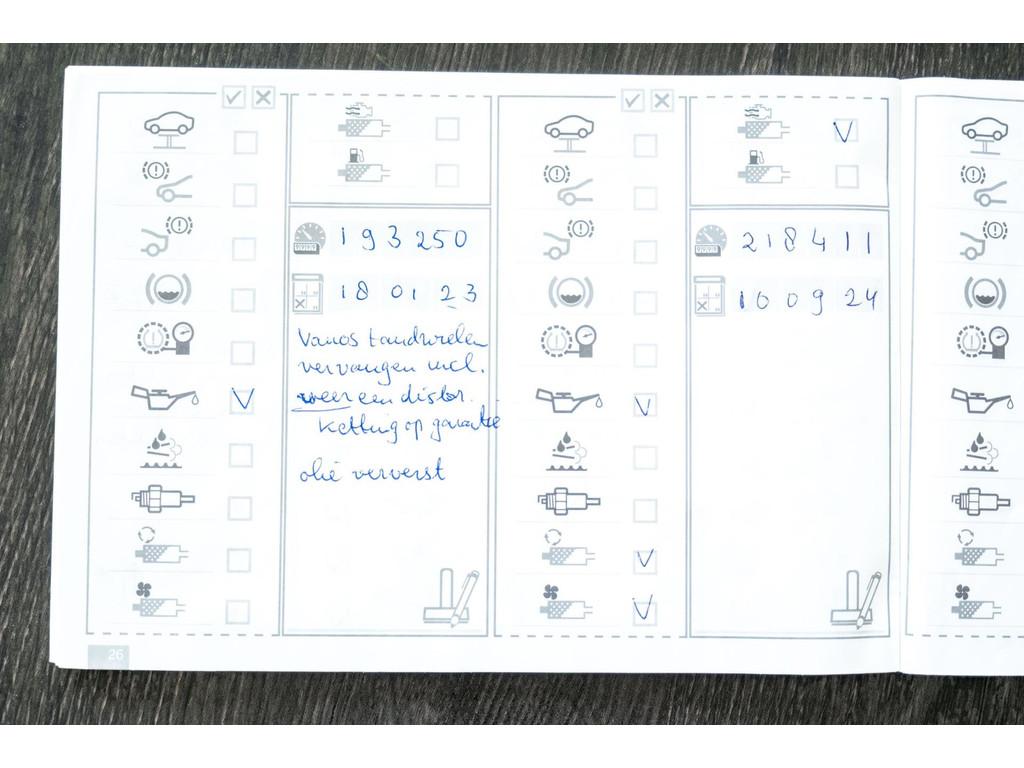 193250
18 01 23
Vanos tandwielen
vervangen incl.
weer een distr.
Ketting op garantie
olie ververst
218411
10 09 24
26